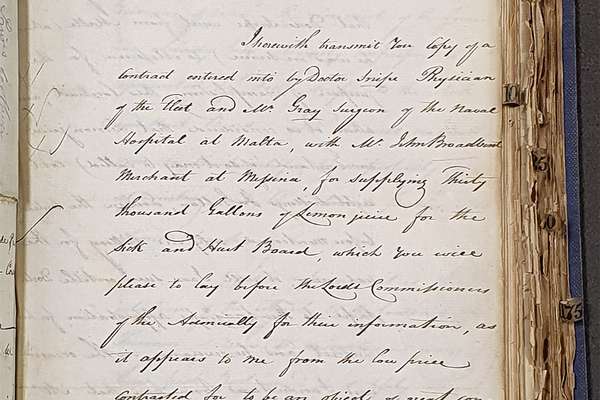 I herewith transmit You Copy of a
Contract entered into by Doctor Snipe Physician
of the Fleet and Mr. Gray Surgeon of the Naval
Hospital at Malta, with Mr. John Broadbent
Merchant at Messina, for supplying Thirty
thousand Gallons of Lemon juice for the
Sick and Hurt Board, which You will
please to lay before the Lords Commissioners
of the Admiralty for their information, as
it appears to me from the low price
Contracted for to be an object of great
10
175